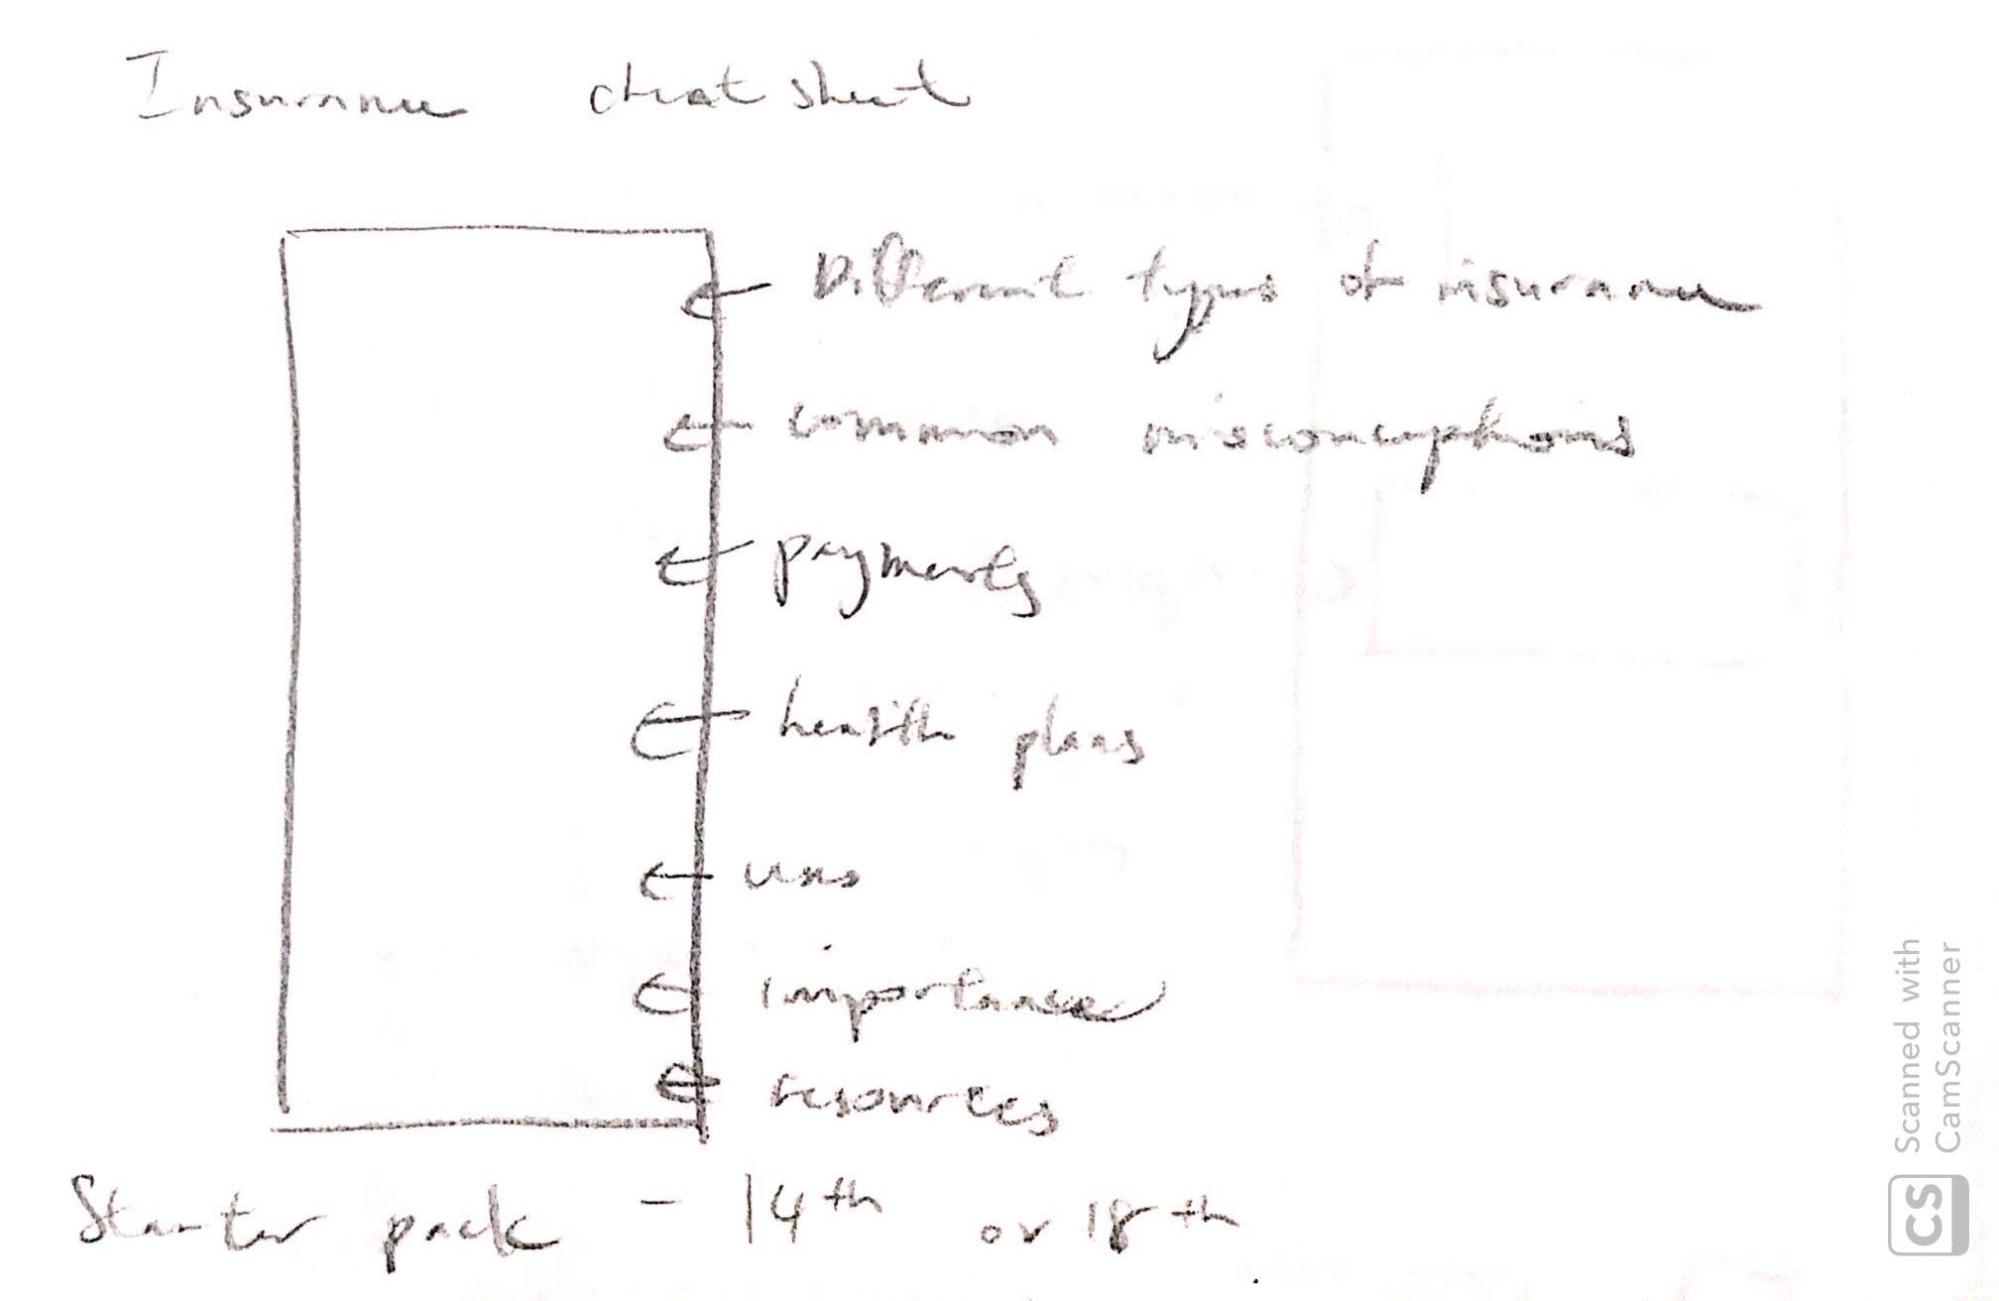 Insurance cheat sheet
Different types of insurance
common misconceptions
payments
health plans
uses
importance
resources
Starter pack - 14th or 18th
Scanned with
CamScanner
CS